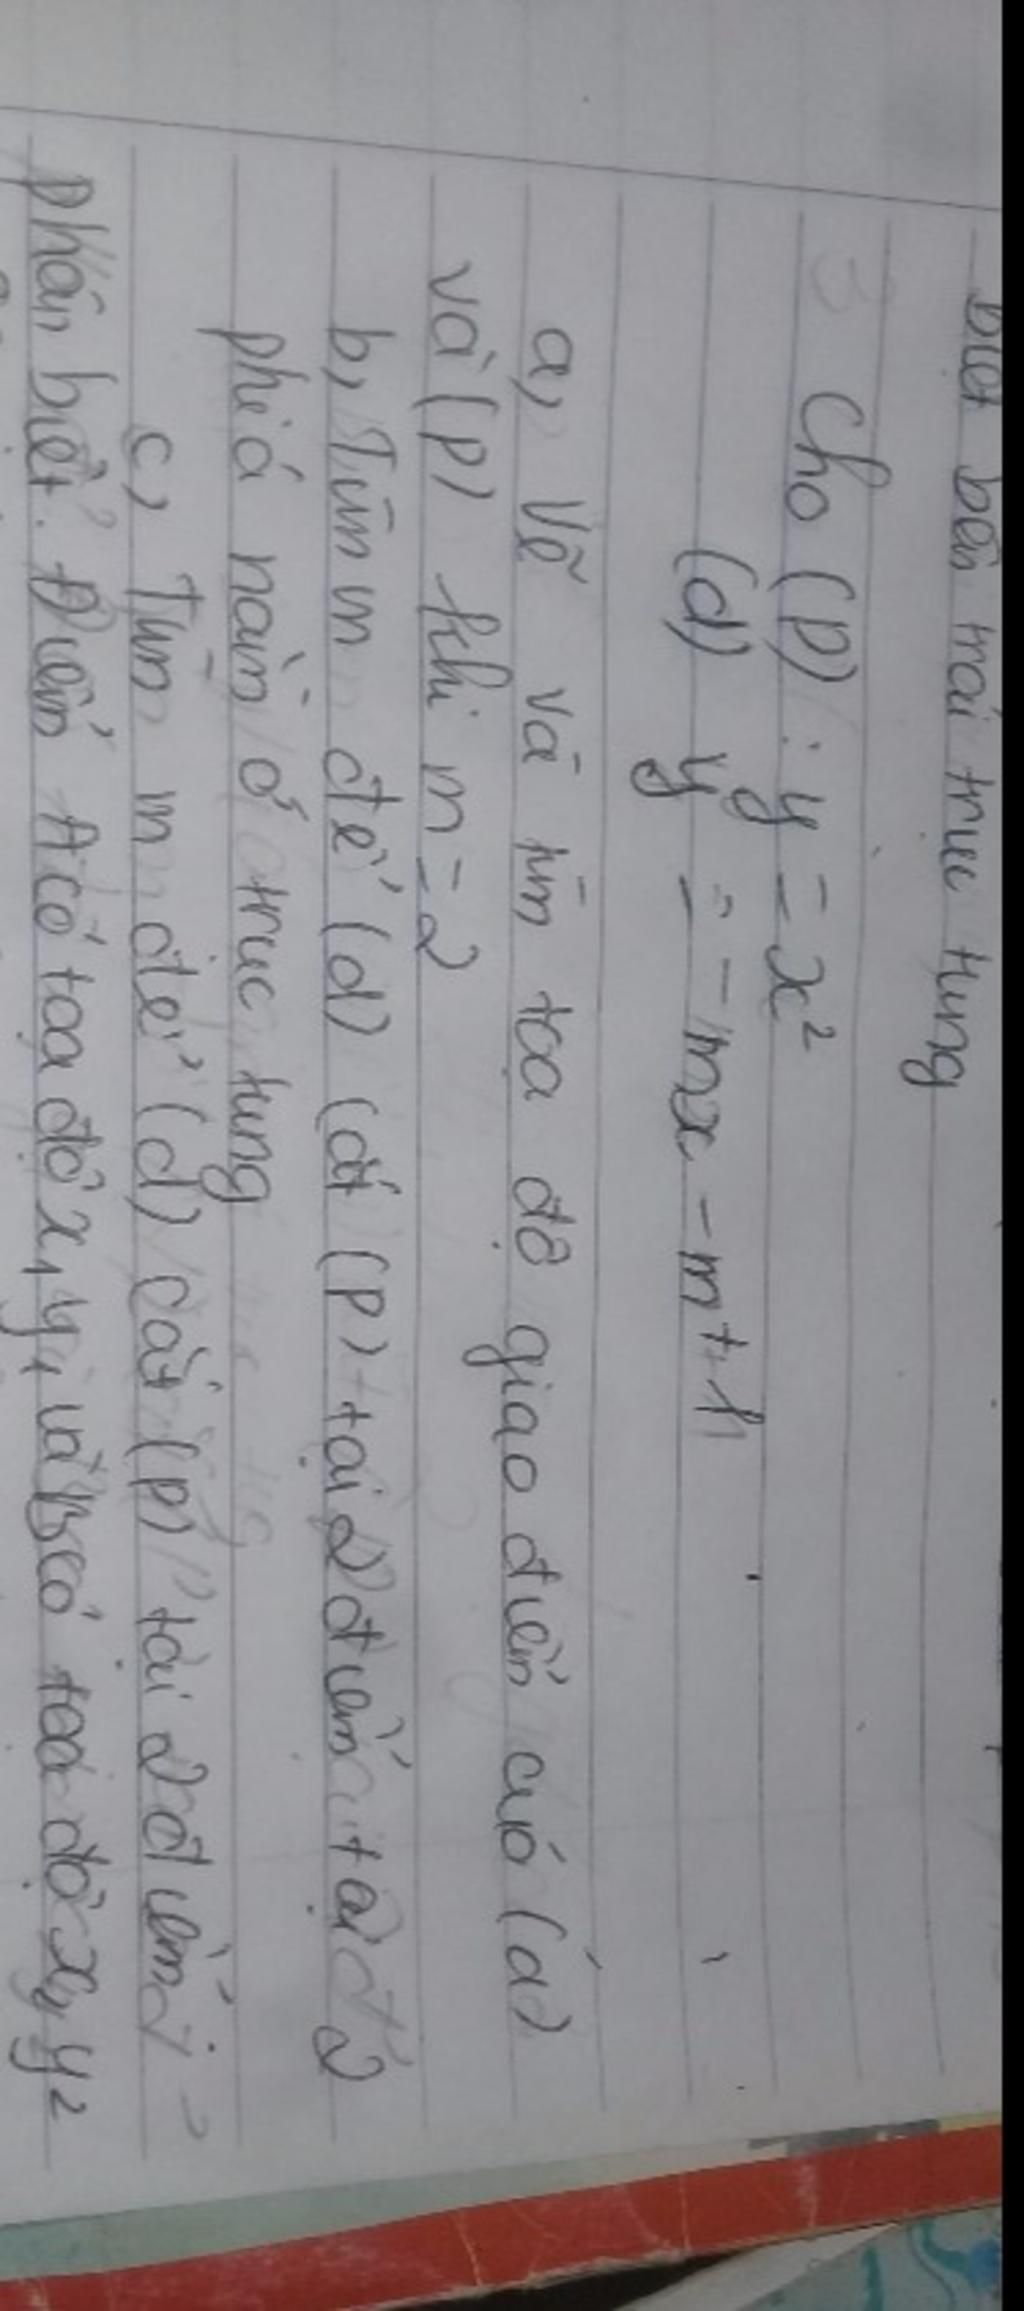 biệt bên trái trục tung
3 Cho (P) : y = x²
(d) y = -mx - m + 1
a, Vẽ và tìm tọa độ giao điểm của (d)
và (P) khi m = 2
b, Tìm m để (d) cắt (P) tại 2 điểm tại 2
phía nằm ở trục tung
c, Tìm m để (d) cắt (P) tại 2 điểm
phân biệt. Điểm A có tọa độ x₁ y₁ và B có tọa độ x₂ y₂